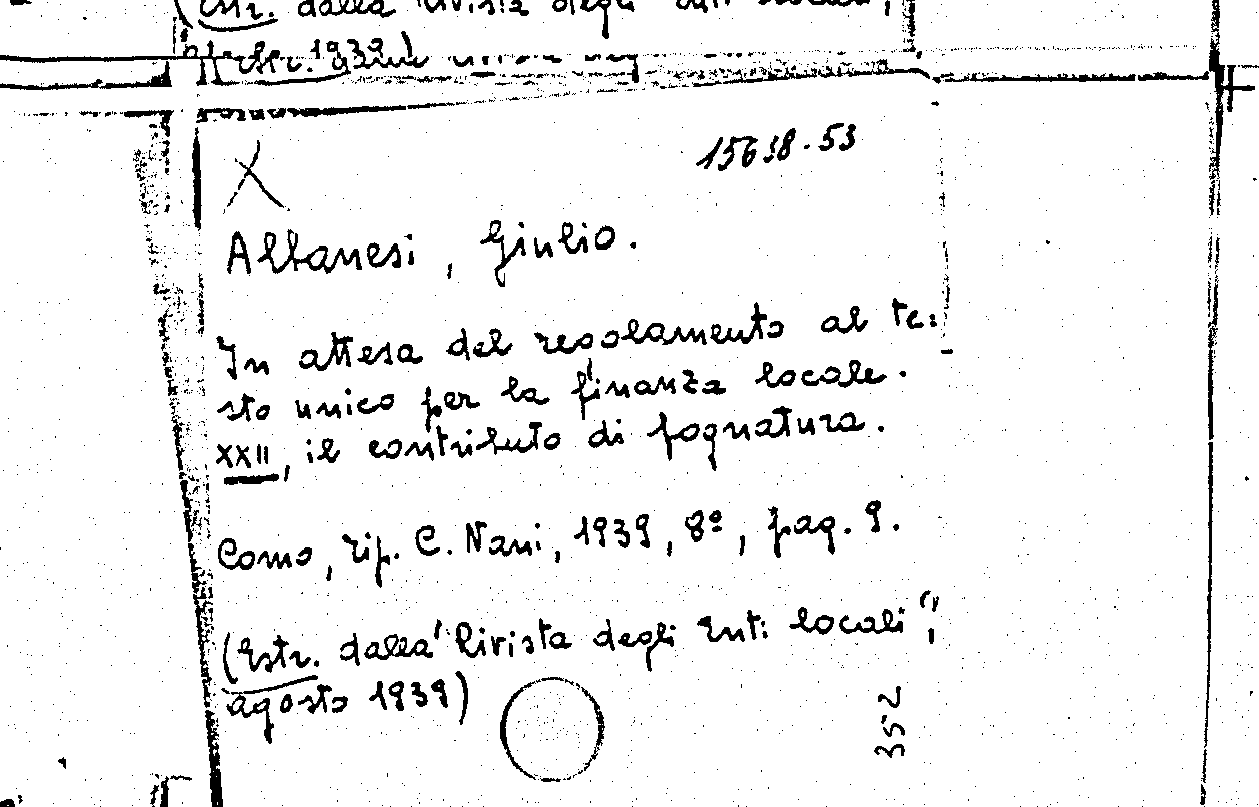 (Estr. dalla Rivista degli Enti locali",
1939)
15638.53
X
Albanesi, Giulio.
In attesa del regolamento al te:
sto unico per la finanza locale.
XXII, il contributo di fognatura.
Como, tip. C. Nani, 1939, 8º, pag. 9.
(Estr. dalla "Rivista degli Enti locali",
agosto 1939)
352